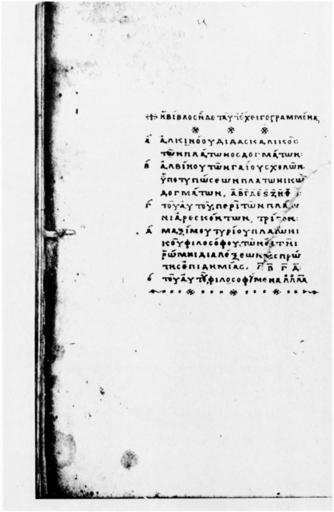 ἡ βίβλος ἥδε ταῦτ' ἔχει γεγραμμένα
α ἀλκινόου διδασκαλικὸς
τῶν πλάτωνος δογμάτων:
β ἀλβίνου τῶν γαΐου σχολῶν
ὑποτυπώσεων πλατωνικῶ
δογμάτων, α β γ δ ε ϛ ζ η θ
γ τοῦ αὐτοῦ, περὶ τῶν πλάτω
νι ἀρεσκόντων, τρίτον:
δ μαξίμου τυρίου πλατωνι
κοῦ φιλοσόφου, τῶν ἐν
ῥώμηι διαλέξεων τῆς πρώ
της ἐπιδημίας, β γ δ
ε τοῦ αὐτοῦ φιλοσοφούμενα